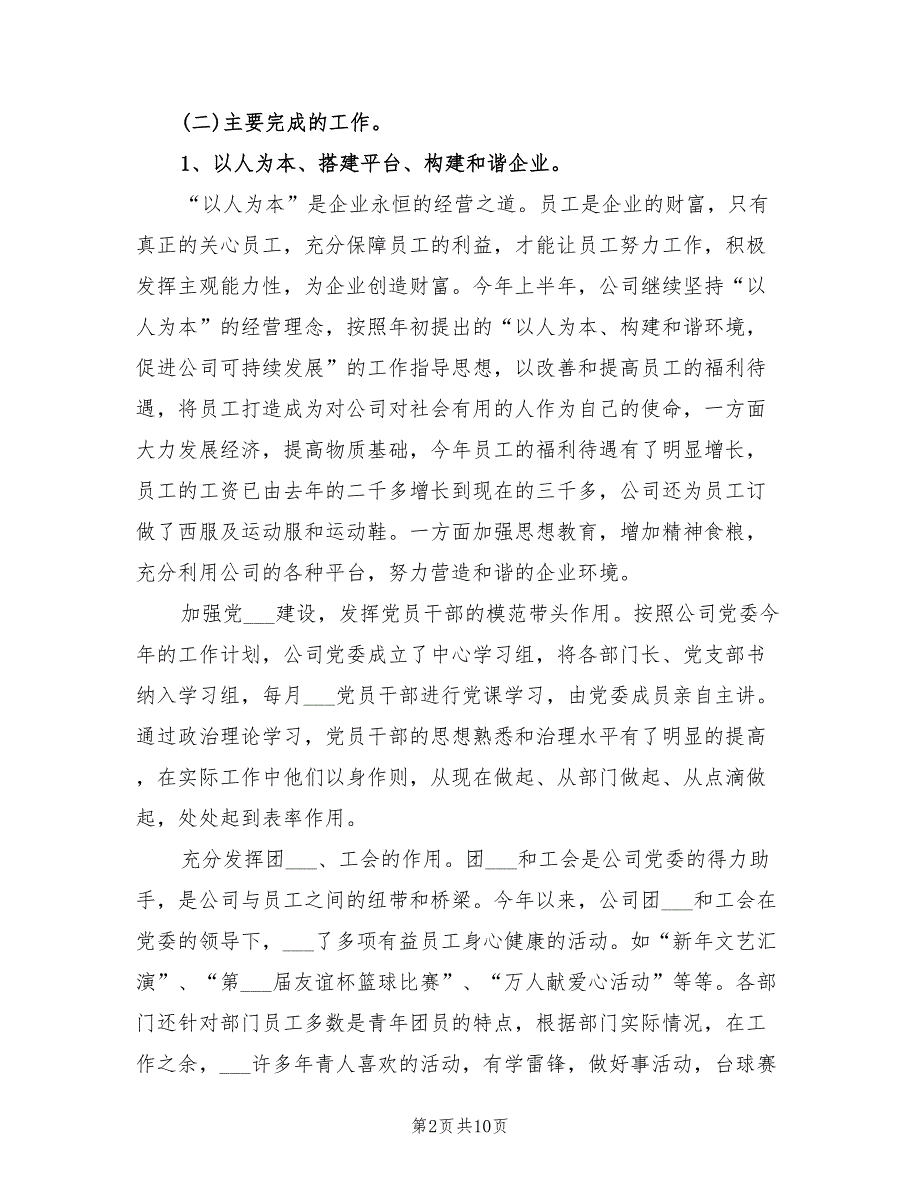 (二)主要完成的工作。
1、以人为本、搭建平台、构建和谐企业。
“以人为本”是企业永恒的经营之道。员工是企业的财富，只有
真正的关心员工，充分保障员工的利益，才能让员工努力工作，积极
发挥主观能力性，为企业创造财富。今年上半年，公司继续坚持“以
人为本”的经营理念，按照年初提出的“以人为本、构建和谐环境，
促进公司可持续发展”的工作指导思想，以改善和提高员工的福利待
遇，将员工打造成为对公司对社会有用的人作为自己的使命，一方面
大力发展经济，提高物质基础，今年员工的福利待遇有了明显增长，
员工的工资已由去年的二千多增长到现在的三千多，公司还为员工订
做了西服及运动服和运动鞋。一方面加强思想教育，增加精神食粮，
充分利用公司的各种平台，努力营造和谐的企业环境。
加强党___建设，发挥党员干部的模范带头作用。按照公司党委今
年的工作计划，公司党委成立了中心学习组，将各部门长、党支部书
纳入学习组，每月___党员干部进行党课学习，由党委成员亲自主讲。
通过政治理论学习，党员干部的思想熟悉和治理水平有了明显的提高
，在实际工作中他们以身作则，从现在做起、从部门做起、从点滴做
起，处处起到表率作用。
充分发挥团___、工会的作用。团___和工会是公司党委的得力助
手，是公司与员工之间的纽带和桥梁。今年以来，公司团___和工会在
党委的领导下，___了多项有益员工身心健康的活动。如“新年文艺汇
演”、“第___届友谊杯篮球比赛”、“万人献爱心活动”等等。各部
门还针对部门员工多数是青年团员的特点，根据部门实际情况，在工
作之余，___许多年青人喜欢的活动，有学雷锋，做好事活动，台球赛
第2页共10页